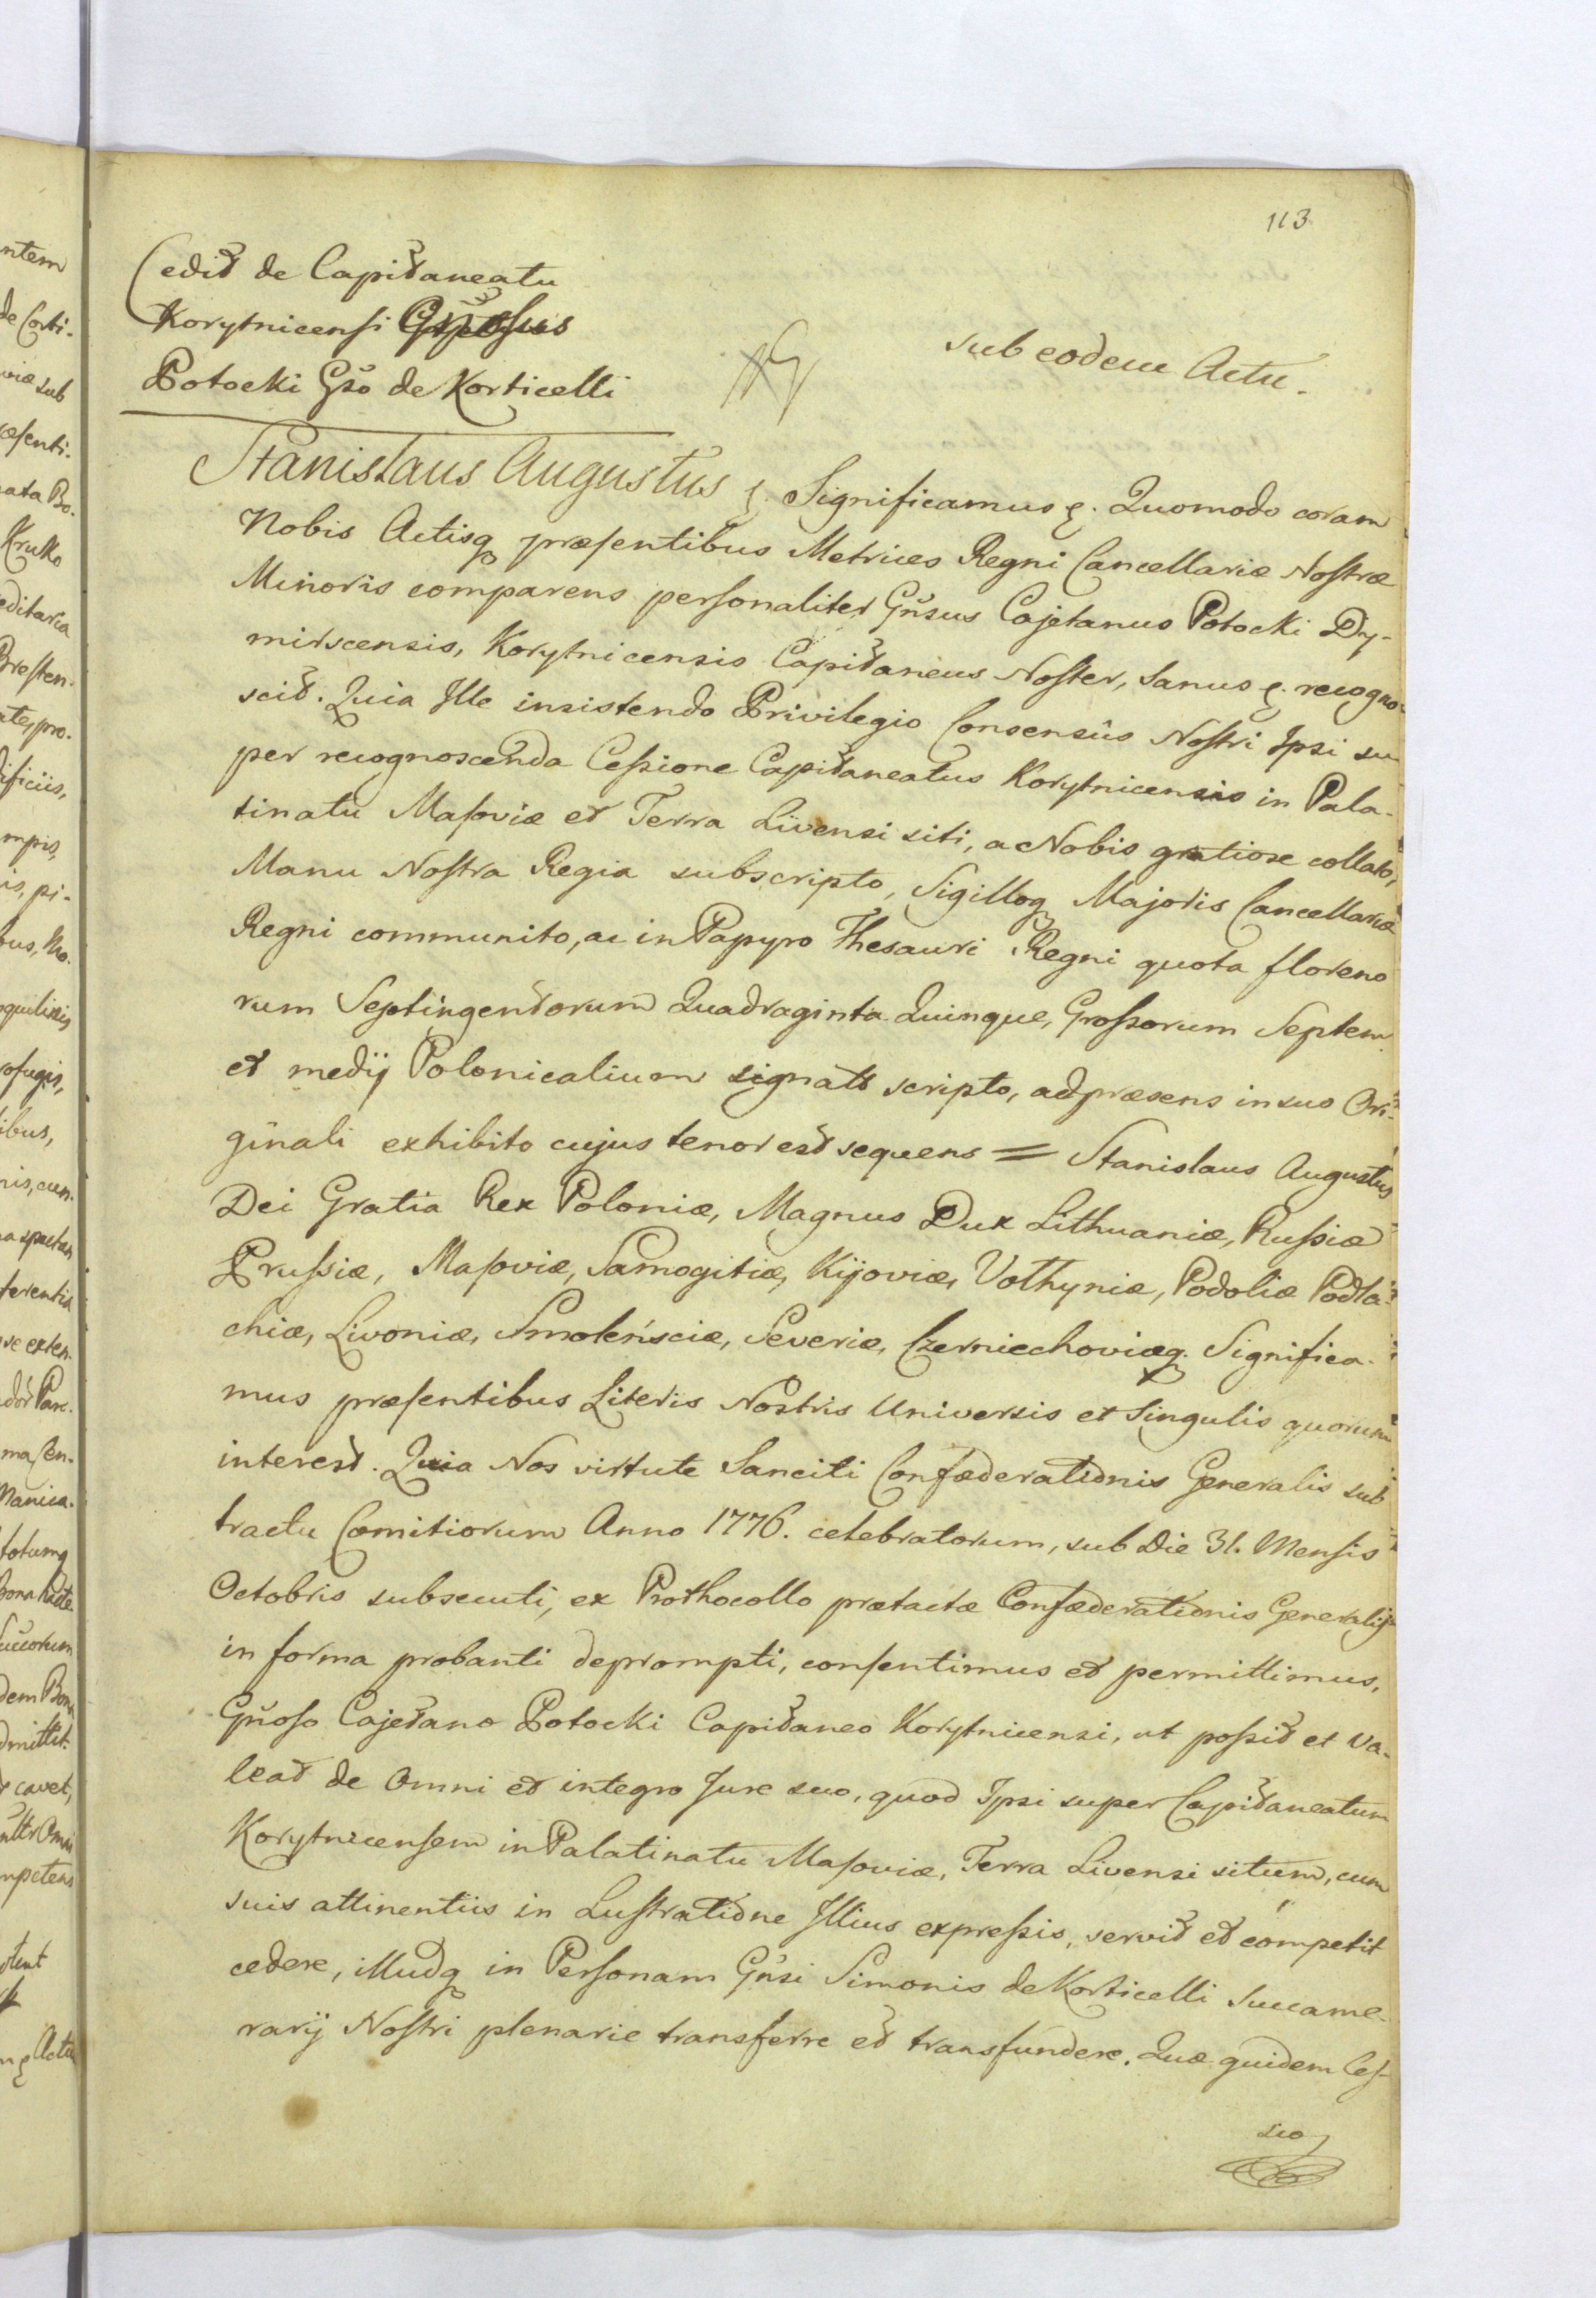 113
Cedit de Capitaneatu
Korytnicensi Gnosus
Potocki Gso de Korticelli
sub eodem Actu.
Stanislaus Augustus &. Significamus &. Quomodo coram
Nobis Actisq præsentibus Metrices Regni Cancellariæ Nostræ
Minoris comparens personaliter Gnsus Cajetanus Potocki Dy-
mirscensis, Korytnicensis Capitaneus Noster, Sanus &. recogno-
scit. Quia Ille insistendo Privilegio Consensûs Nostri Ipsi su
per recognoscenda Cessione Capitaneatus Korytnicensis in Pala-
tinatu Masoviæ et Terra Livensi siti, a Nobis gratiose collato,
Manu Nostra Regia subscripto, Sigilloq Majoris Cancellariæ
Regni communito, ac in Papyro Thesauri Regni quota floreno
rum Septingentorum Quadraginta Quinque, Grossorum Septem
et medij Polonicalium signato scripto, ad præsens in suo Ori-
ginali exhibito cujus tenor est sequens = Stanislaus Augustus
Dei Gratia Rex Poloniæ, Magnus Dux Lithuaniæ, Russiæ
Prussiæ, Masoviæ, Samogitiæ, Kijoviæ, Volhyniæ, Podoliæ Podla-
chiæ, Livoniæ, Smolénsciæ, Severiæ, Czerniechoviæq. Significa-
mus præsentibus Literis Nostris Universis et Singulis quorum
interest. Quia Nos virtute Sanciti Confæderationis Generalis sub
tractu Comitiorum Anno 1776. celebratorum, sub Die 31. Mensis
Octobris subsecuti, ex Prothocollo prætactæ Confæderationis Generalis
in forma probanti deprompti, consentimus et permittimus,
Gnoso Cajetano Potocki Capitaneo Korytnicensi, ut possit et va-
leat de Omni et integro Jure suo, quod Ipsi super Capitaneatum
Korytnicensem in Palatinatu Masoviæ, Terra Livensi situm, cum
suis attinentiis in Lustratione Illius expressis, servit et competit
cedere, illudq in Personam Gnsi Simonis de Korticelli Succame-
rarij Nostri plenarie transferre et transfundere. Quæ quidem Ces-
sio